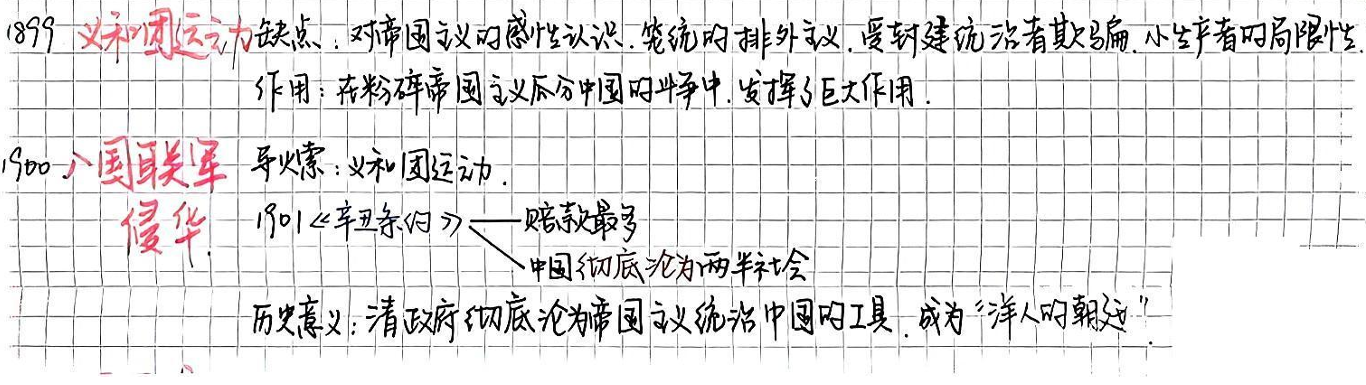 1899 义和团运动 缺点：对帝国主义的感性认识.笼统的排外主义.受封建统治者欺骗.小生产者的局限性.
作用：在粉碎帝国主义瓜分中国的斗争中.发挥了巨大作用.
1900 八国联军 导火索：义和团运动.
侵华. 1901《辛丑条约》——赔款最多
中国彻底沦为两半社会
历史意义：清政府彻底沦为帝国主义统治中国的工具.成为“洋人的朝廷”.